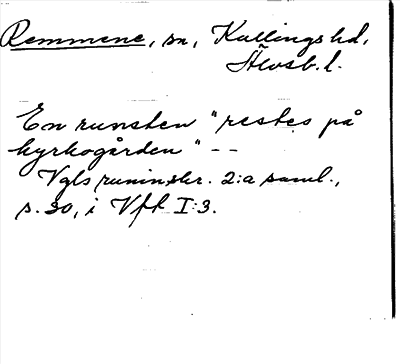 Remmene, sn, Kullings hd,
Älvsb. l.
En runsten "restes på
kyrkogården" --
Vgls runinskr. 2:a saml.,
s. 30, i Vft I:3.